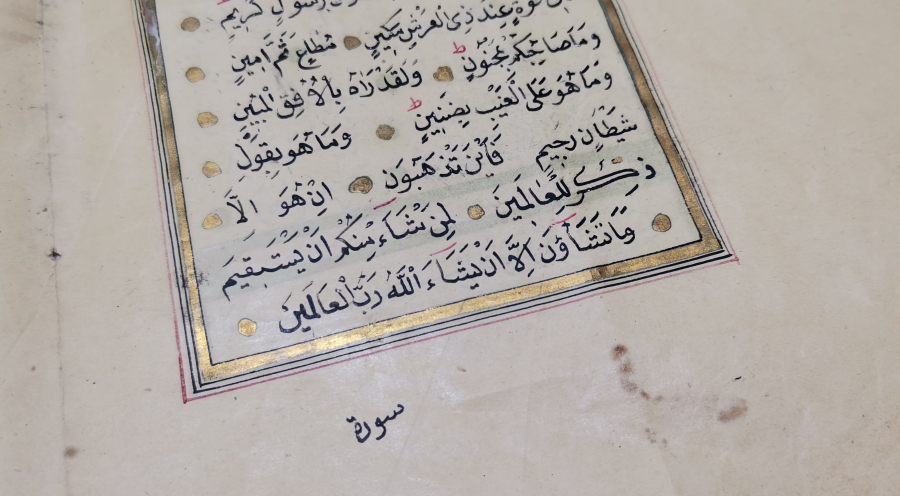 رَسُولٍ كَرِيمٍ
قُوَّةٍ عِنْدَ ذِى الْعَرْشِ مَكِينٍ مُطَاعٍ ثَمَّ اَمِينٍ
وَمَا صَاحِبُكُمْ بِمَجْنُونٍ ط وَلَقَدْ رَاٰهُ بِالْاُفُقِ الْمُبِينِ
وَمَا هُوَ عَلَى الْغَيْبِ بِضَنِينٍ ط وَمَا هُوَ بِقَوْلِ
شَيْطَانٍ رَجِيمٍ فَاَيْنَ تَذْهَبُونَ اِنْ هُوَ اِلَّا
ذِكْرٌ لِلْعَالَمِينَ لِمَنْ شَاءَ مِنْكُمْ اَنْ يَسْتَقِيمَ
وَمَا تَشَاؤُنَ اِلَّا اَنْ يَشَاءَ اللّٰهُ رَبُّ الْعَالَمِينَ
سورة